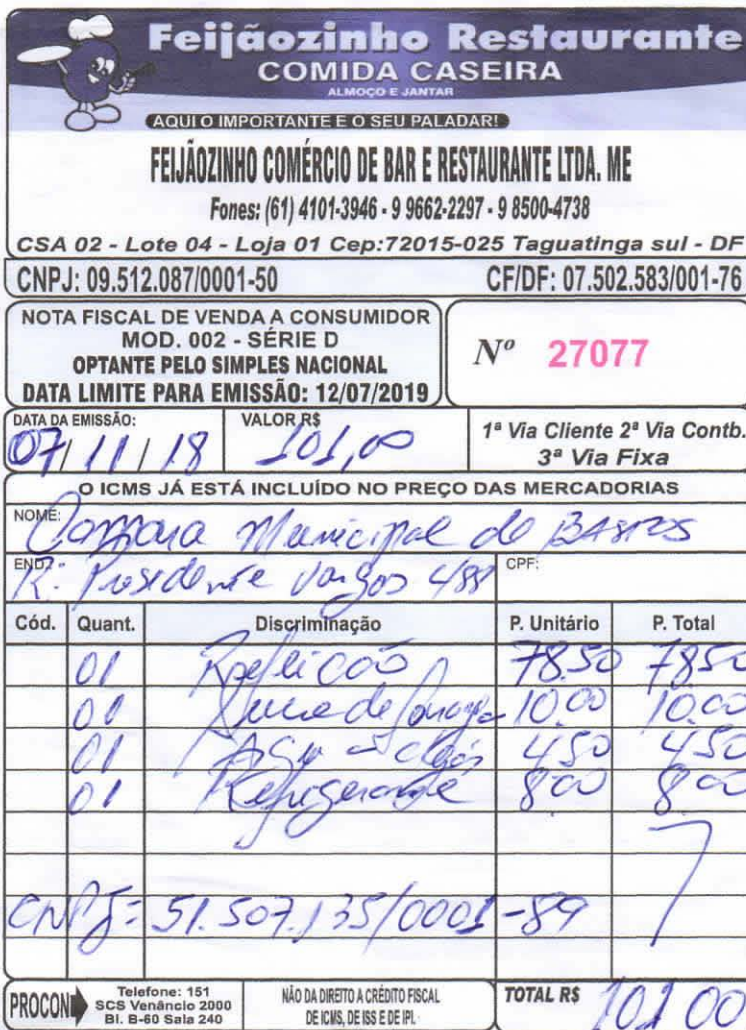 Feijãozinho Restaurante
COMIDA CASEIRA
ALMOÇO E JANTAR
AQUI O IMPORTANTE E O SEU PALADAR!
FEIJÃOZINHO COMÉRCIO DE BAR E RESTAURANTE LTDA. ME
Fones: (61) 4101-3946 - 9 9662-2297 - 9 8500-4738
CSA 02 - Lote 04 - Loja 01 Cep:72015-025 Taguatinga sul - DF
CNPJ: 09.512.087/0001-50 CF/DF: 07.502.583/001-76
NOTA FISCAL DE VENDA A CONSUMIDOR
MOD. 002 - SÉRIE D
OPTANTE PELO SIMPLES NACIONAL
DATA LIMITE PARA EMISSÃO: 12/07/2019
Nº 27077
DATA DA EMISSÃO: 07/11/18
VALOR R$ 101,00
1ª Via Cliente 2ª Via Contb.
3ª Via Fixa
O ICMS JÁ ESTÁ INCLUÍDO NO PREÇO DAS MERCADORIAS
NOME: Camara Municipal de BASTOS
END: R: Presidente Vargas 488 CPF:
Cód. Quant. Discriminação P. Unitário P. Total
01 Refeição 78.50 78.50
01 Suco de laranja 10.00 10.00
01 Agua c/gás 4.50 4.50
01 Refrigerante 8.00 8.00
CNPJ: 51.507.135/0001-89
PROCON
Telefone: 151
SCS Venâncio 2000
Bl. B-60 Sala 240
NÃO DA DIREITO A CRÉDITO FISCAL
DE ICMS, DE ISS E DE IPI.
TOTAL R$ 101 00